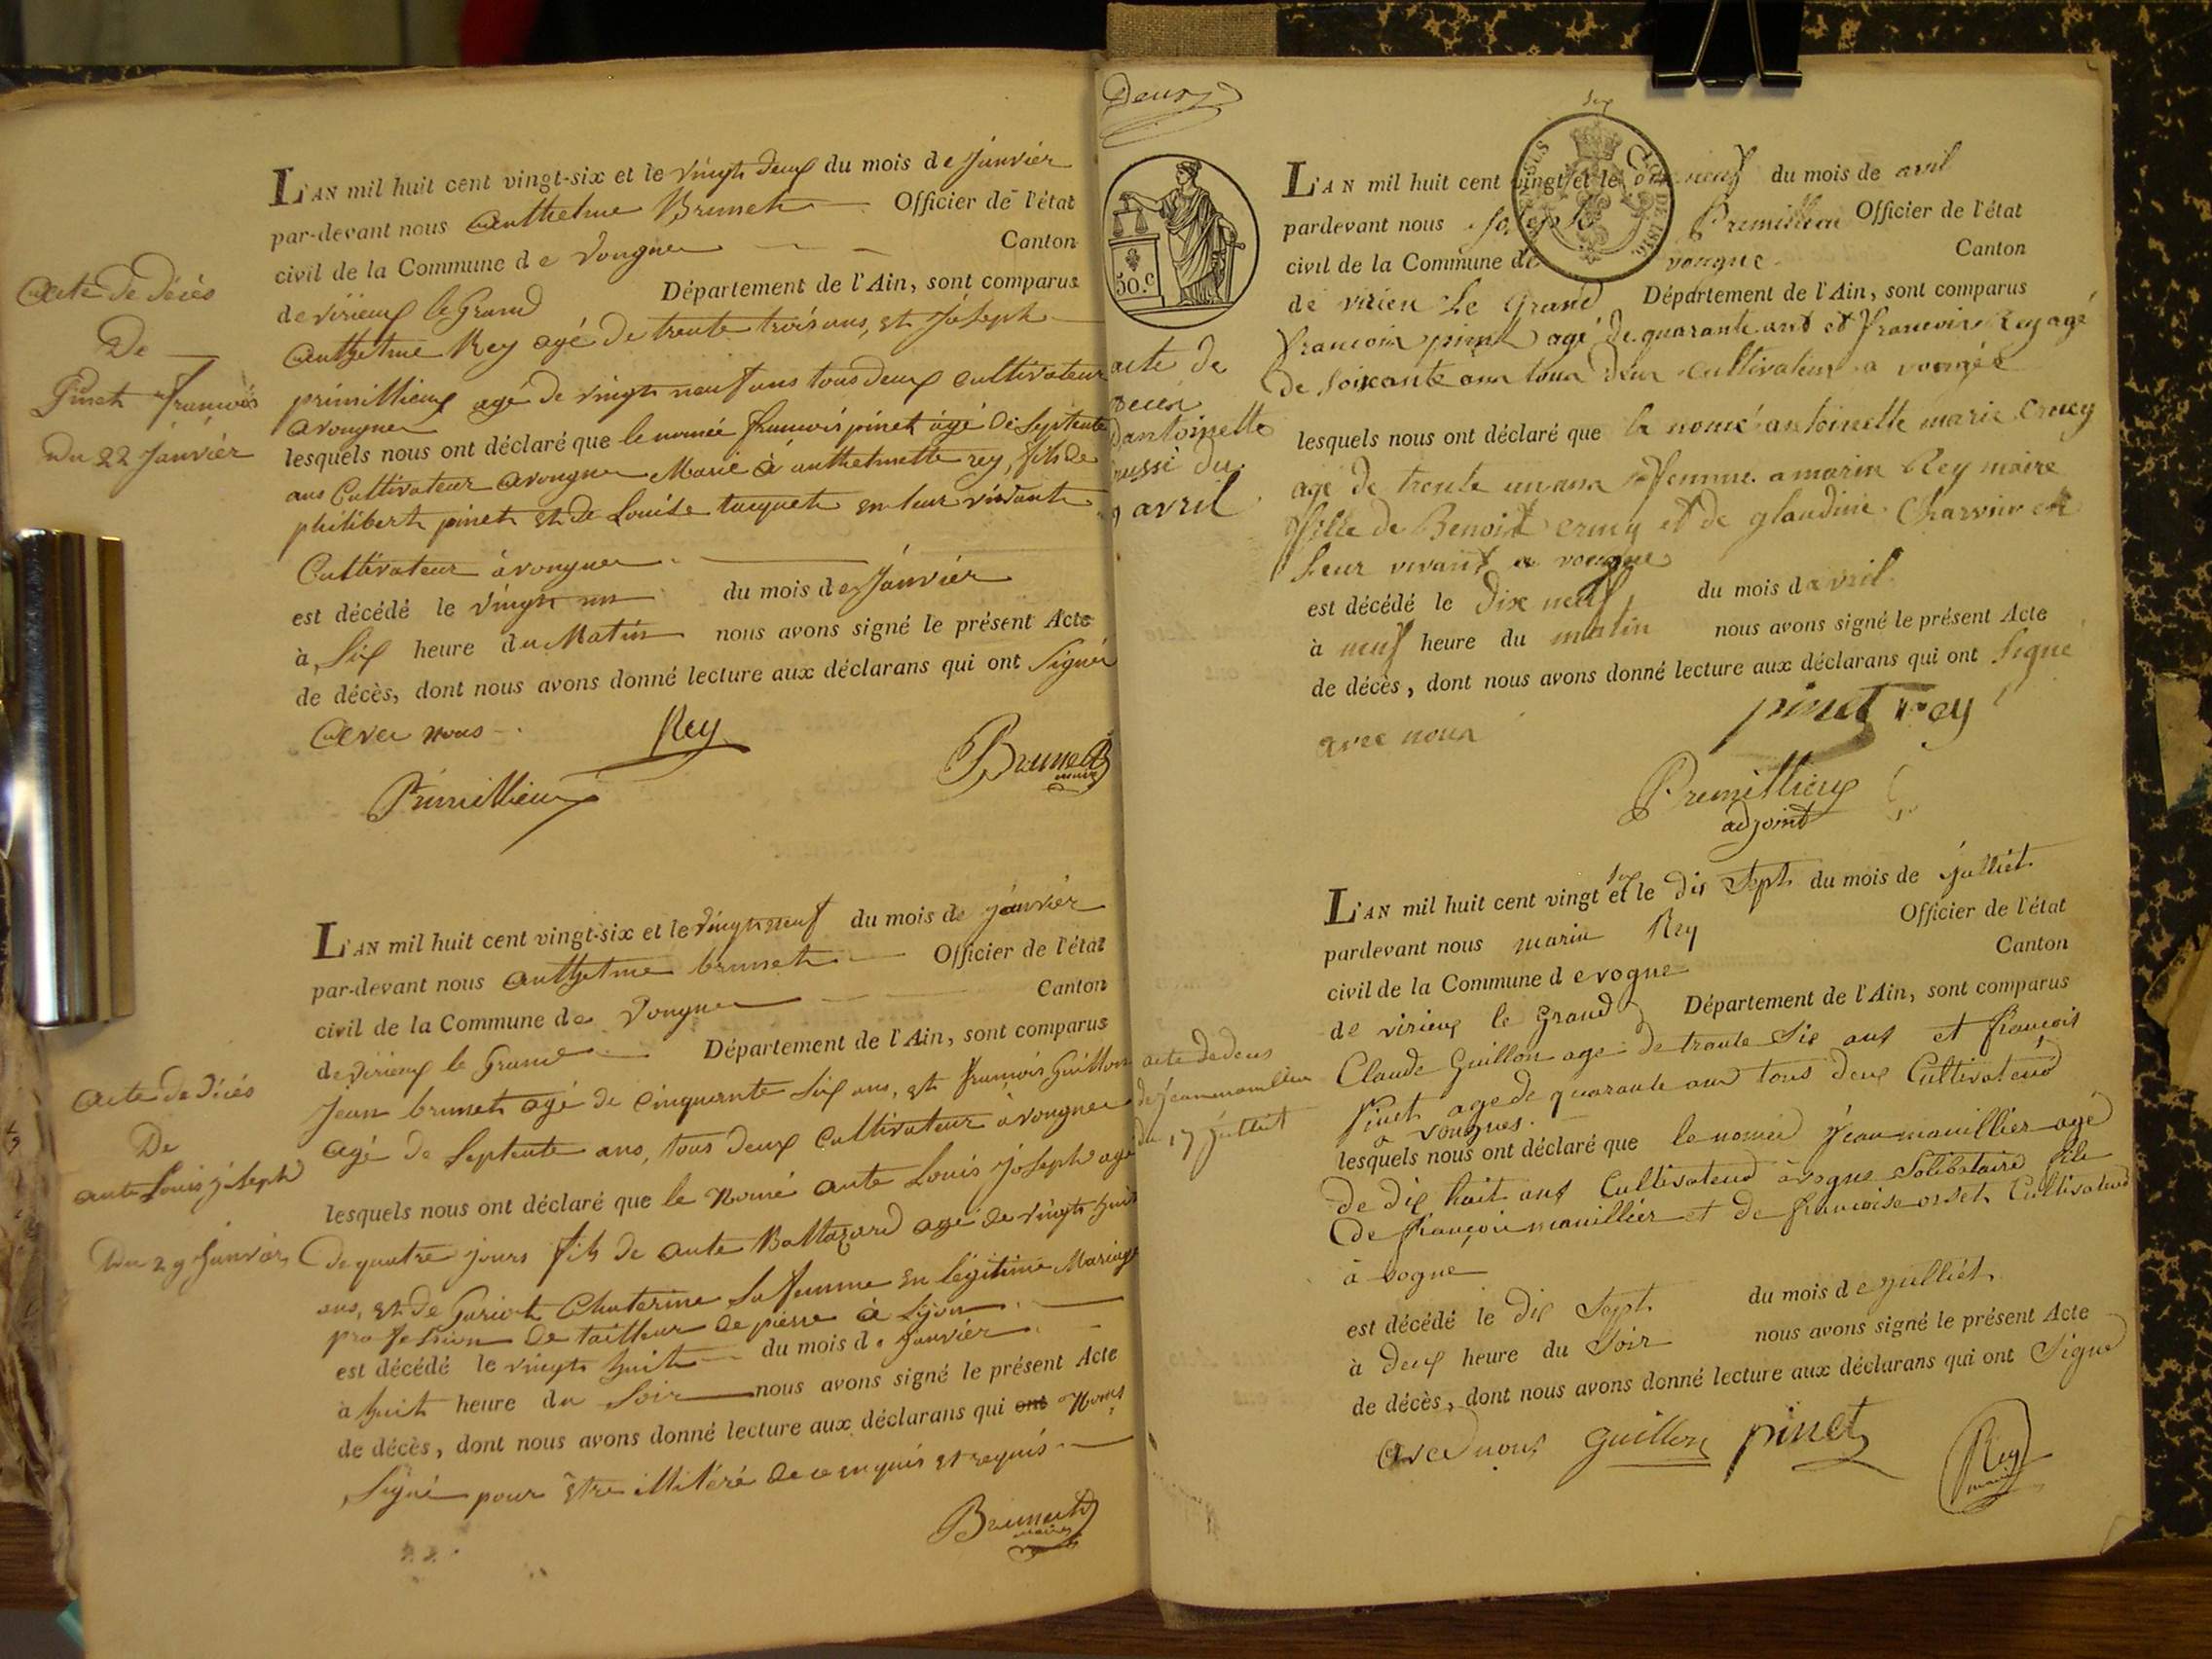 L'AN mil huit cent vingt-six et le vingt deux du mois de Janvier
par-devant nous Anthelme Brunet Officier de l'état
civil de la Commune de Vongne Canton
de virieux le Grand Département de l'Ain, sont comparus
Anthelme Rey agé de trente trois ans, et Joseph
primillieux agé de vingt neuf ans tous deux cultivateur
a vongne
lesquels nous ont déclaré que le nomée francois pinet agé de Septente
ans Cultivateur a vongne Marié à anthelmette rey, fils de
philibert pinet et de Louise tuquet en leur vivant
Cultivateur à vongne
est décédé le vingt un du mois de Janvier
à Six heure du Matin nous avons signé le présent Acte
de décès, dont nous avons donné lecture aux déclarans qui ont Signé
avec nous
Rey
Primillieux
Brunet
maire
Acte de décès
De
Pinet francois
Du 22 Janvier
L'AN mil huit cent vingt-six et le vingt neuf du mois de janvier
par-devant nous anthelme brunet Officier de l'état
civil de la Commune de Vongne Canton
de virieux le Grand Département de l'Ain, sont comparus
jean brunet agé de cinquante Six ans, et francois Guillon
agé de Septente ans, tous deux Cultivateur à vongne
lesquels nous ont déclaré que le Nomé ante Louis Joseph agé
de quatre jours fils de ante Baltazard agé de vingt huit
ans, et de Guriot Chaterine Sa femme en légitime Mariage
profession de tailleur de pierre à Lyon
est décédé le vingt huit du mois de janvier
à huit heure du Soir nous avons signé le présent Acte
de décès, dont nous avons donné lecture aux déclarans qui ont
Signé pour être illitéré de ce enquis et requis
Brunet
maire
Acte de décès
De
ante Louis joseph
Du 29 Janvier
Deux
50.c
L'AN mil huit cent vingt et le dix neuf du mois de avril
pardevant nous joseph Premillieu Officier de l'état
civil de la Commune de vongne Canton
de virieu Le Grand Département de l'Ain, sont comparus
francoir pinet agé de quarante ant et francoir Rey agé
de soixante ans tous deux cultivateur a vongne
lesquels nous ont déclaré que la nomé antoinette marie crucy
agé de trente un ans femme a marin Rey maire
fille de Benoit crucy et de glaudine Charvin en
Leur vivant a vongne
est décédé le dix neuf du mois d avril
à neuf heure du matin nous avons signé le présent Acte
de décès, dont nous avons donné lecture aux déclarans qui ont signé
avec nous
pinet rey
Premillieux
adjoint
acte de
decer
D'antoinette
du
9 avril
L'AN mil huit cent vingt six et le dix Sept du mois de juilliet
pardevant nous marin Rey Officier de l'état
civil de la Commune de vogne Canton
de virieux le Grand Département de l'Ain, sont comparus
Claude Guillon age de trante Six ans et francois
Pinet age de quarante ans tous deux Cultivateur
a vongnes.
lesquels nous ont déclaré que le nomée jean mouillier agé
de dix huit ans Cultivateur à vogne Solibataire fils
de françoi mouillier et de francoise orset Cultivateur
à vogne
est décédé le dix Sept du mois de juilliet
à deux heure du Soir nous avons signé le présent Acte
de décès, dont nous avons donné lecture aux déclarans qui ont Signé
avec nous Guillon pinet
Rey
maire
acte de deces
de jean mouillier
du 17 juilliet